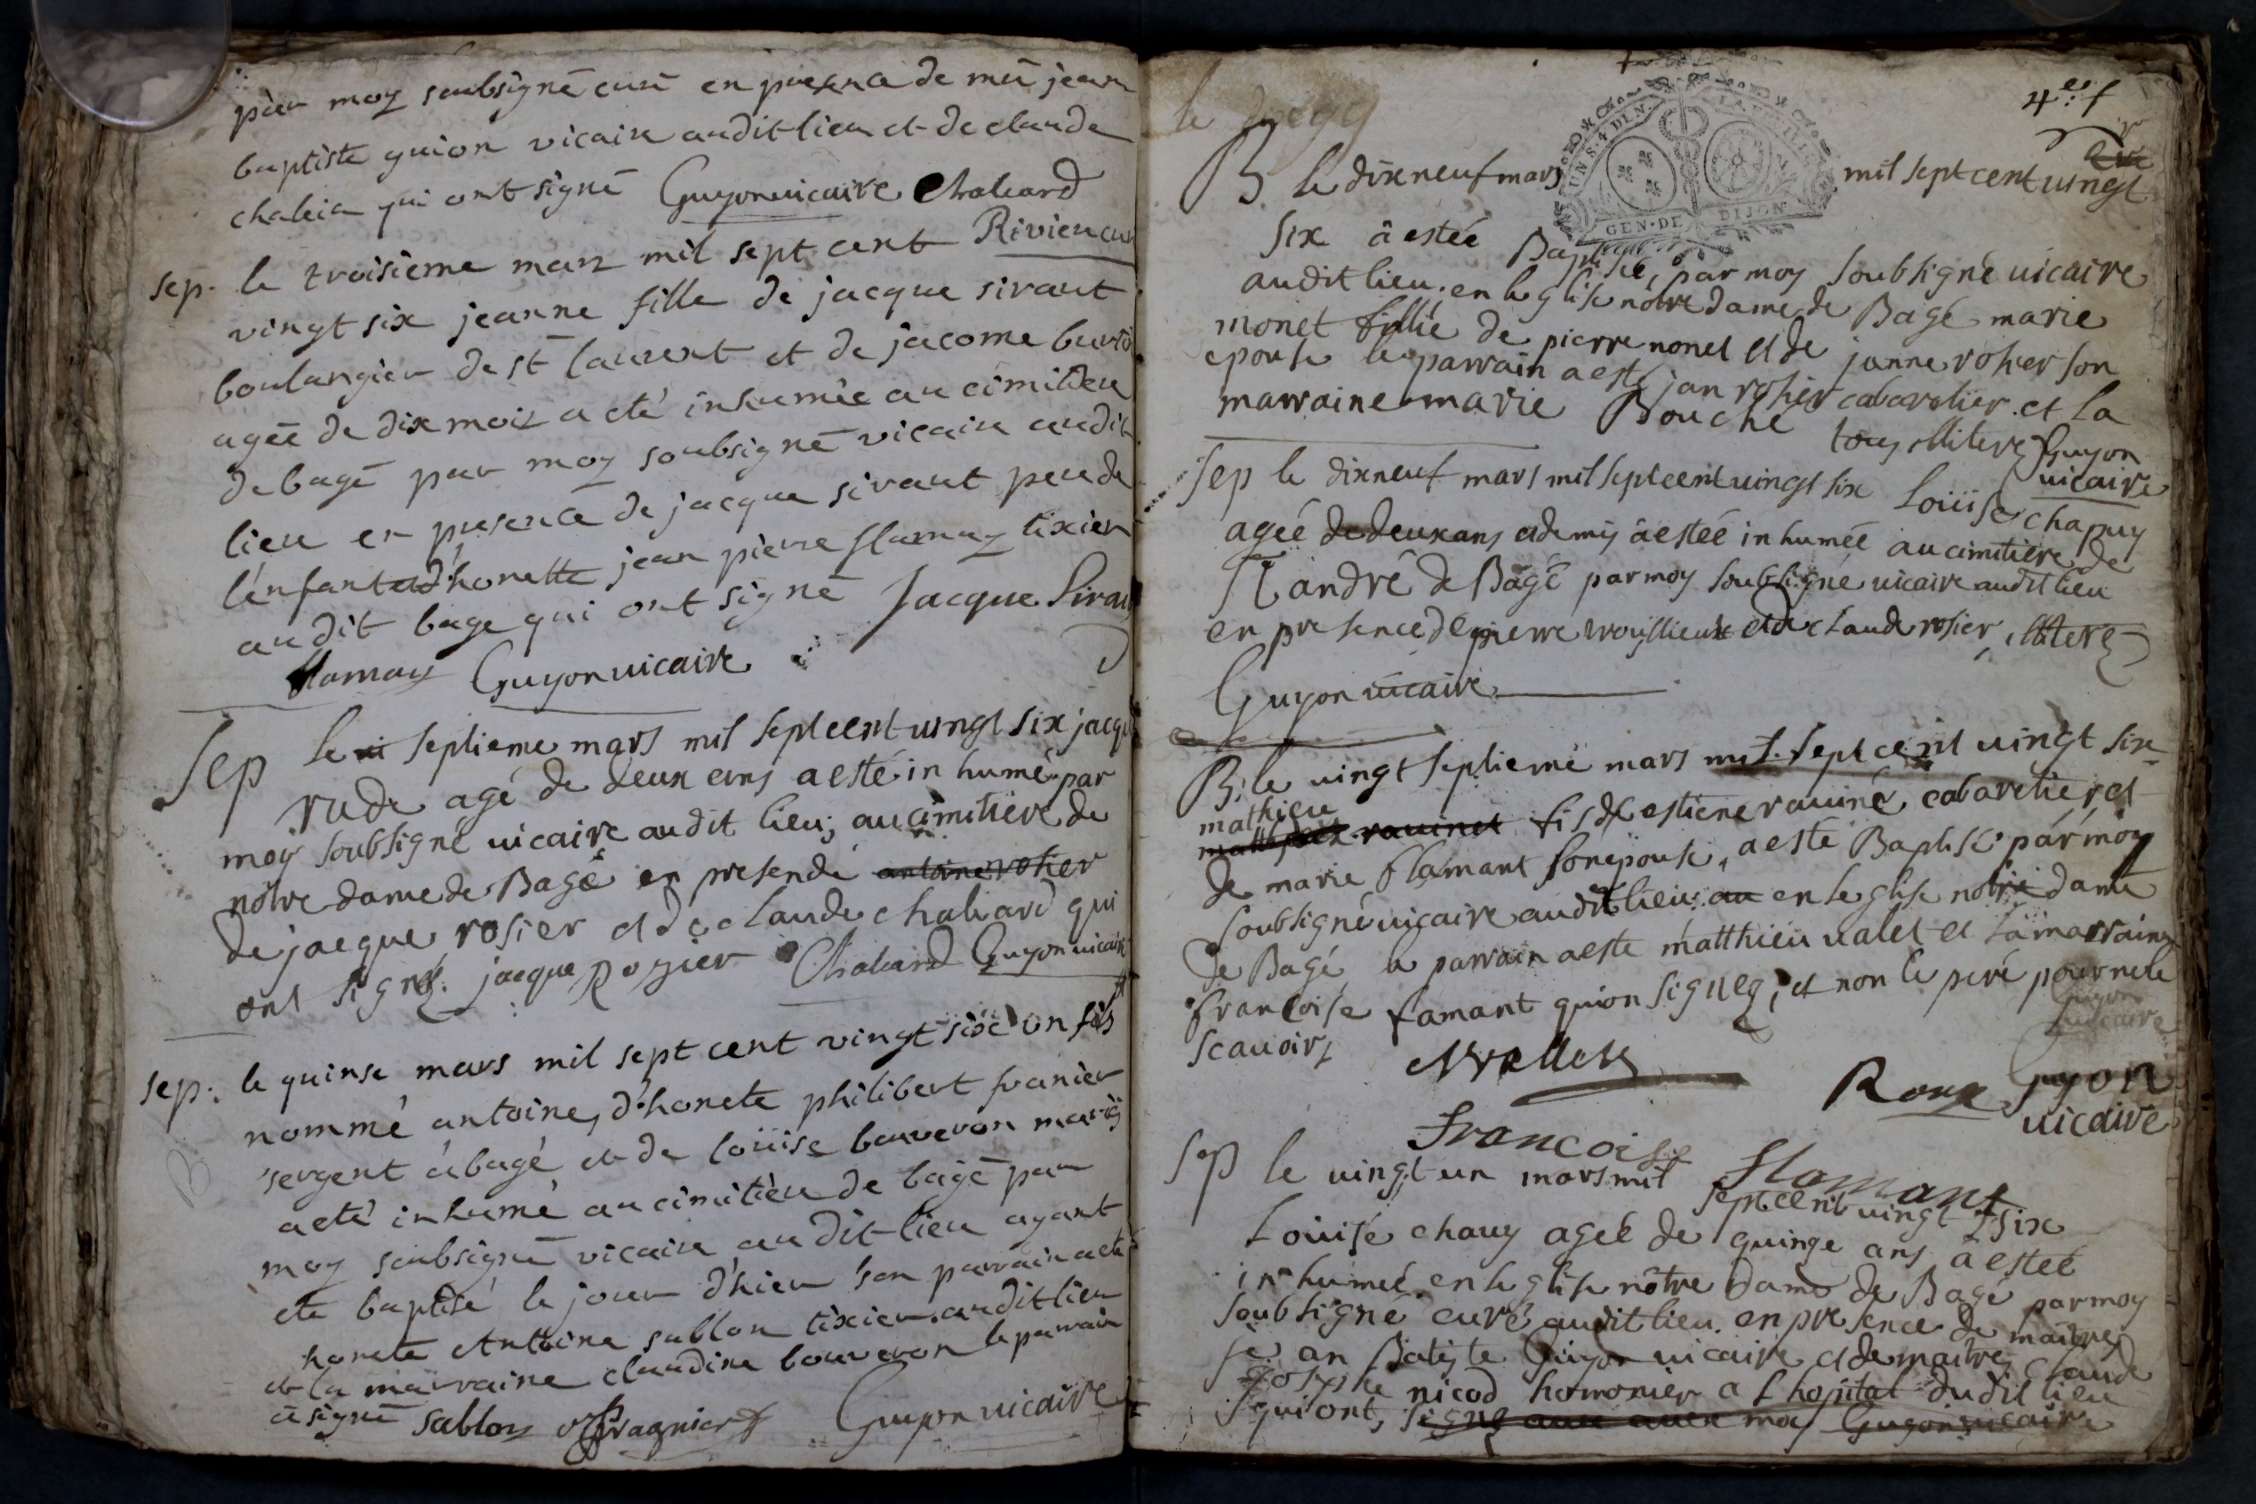 par moy soubsigné curé en presence de mre jean
baptiste guion vicaire audit lieu et de claude
qui ont signé Guyon vicaire Chaliard
Rivier curé
sep. le troisieme mars mil sept cent
vingt six jeanne fille de jacque siraut
boulangier de st laurent et de jacome
agée de dix mois a eté inhumée au cimitiere
de bagé par moy soubsigné vicaire audit
lieu en presence de jacque siraut pere de
l'enfant et d'honette jean pierre flamay tixier
audit bage qui ont signé Jacque Siraut
flamay Guyon vicaire
Sep le vi septieme mars mil sept cent vingt six jacque
rude agé de deux ans a esté inhumé par
moy soubsigné vicaire audit lieu, au cimitiere de
nôtre dame de Bagé en presende antoine rosier
de jacque rosier et de claude chaliard qui
ont signé. jacque Rozier Chaliard Guyon vicaire
sep. le quinse mars mil sept cent vingt six un fils
nommé antoine, d'honete philibert franier
sergent à bagé et de loüise bouveron mariés
a eté inhumé au cimitiere de bagé par
moy soubsigné vicaire audit lieu ayant
eté baptisé le jour d'hier son parrain a eté
honete Antoine sablon tixier audit lieu
et la marraine claudine bouveron le parrain
a signé Sablon Fragnier Guyon vicaire
4e f
B le dixneuf mars mil sept cent vingt
six a estée Baptisée, par moy soubsigné vicaire
audit lieu. en leglise nôtre dame de Bagé marie
monet fillie de pierre monet et de janne rosier son
epouse le parrain a esté jan rosier cabaretier et la
marraine marie Bouché tous illiterez Guyon
vicaire
Sep le dixneuf mars mil sept cent vingt six Loüise chapuy
ageé de deux ans et demy a estée inhumée au cimitiere de
St andré de Bagé par moy soubsigné vicaire audit lieu
en presence de pierre et de claude rosier, illiterez
Guyon vicaire
B. le vingt septieme mars mil sept cent vingt six
mathieu
ravinet fis de estiene raviné cabaretier et
de marie flamant son epouse, a esté Baptisé par moy
soubsigné vicaire audit lieu au en leglise nôtre dame
de Bagé le parrain a esté matthieu valet et la marraine
francoise famant qui on signez, et non le peré pour ne le
scavoir
Guyon
vicaire
Mvallet Roux Guyon
vicaire
Francoise Flamant
Sep le vingt un mars mil
sept cent vingt six
Loüise chauy ageé de quinze ans a esteé
inhumeé en leglise nôtre Dame de Bagé par moy
soubsigné curé audit lieu. en presence de maitre
je an Batiste Guyon vicaire et de maitre claude
josephe nicod homonier a l hopital dudit lieu
qui ont, signé avec moy Guyon vicaire